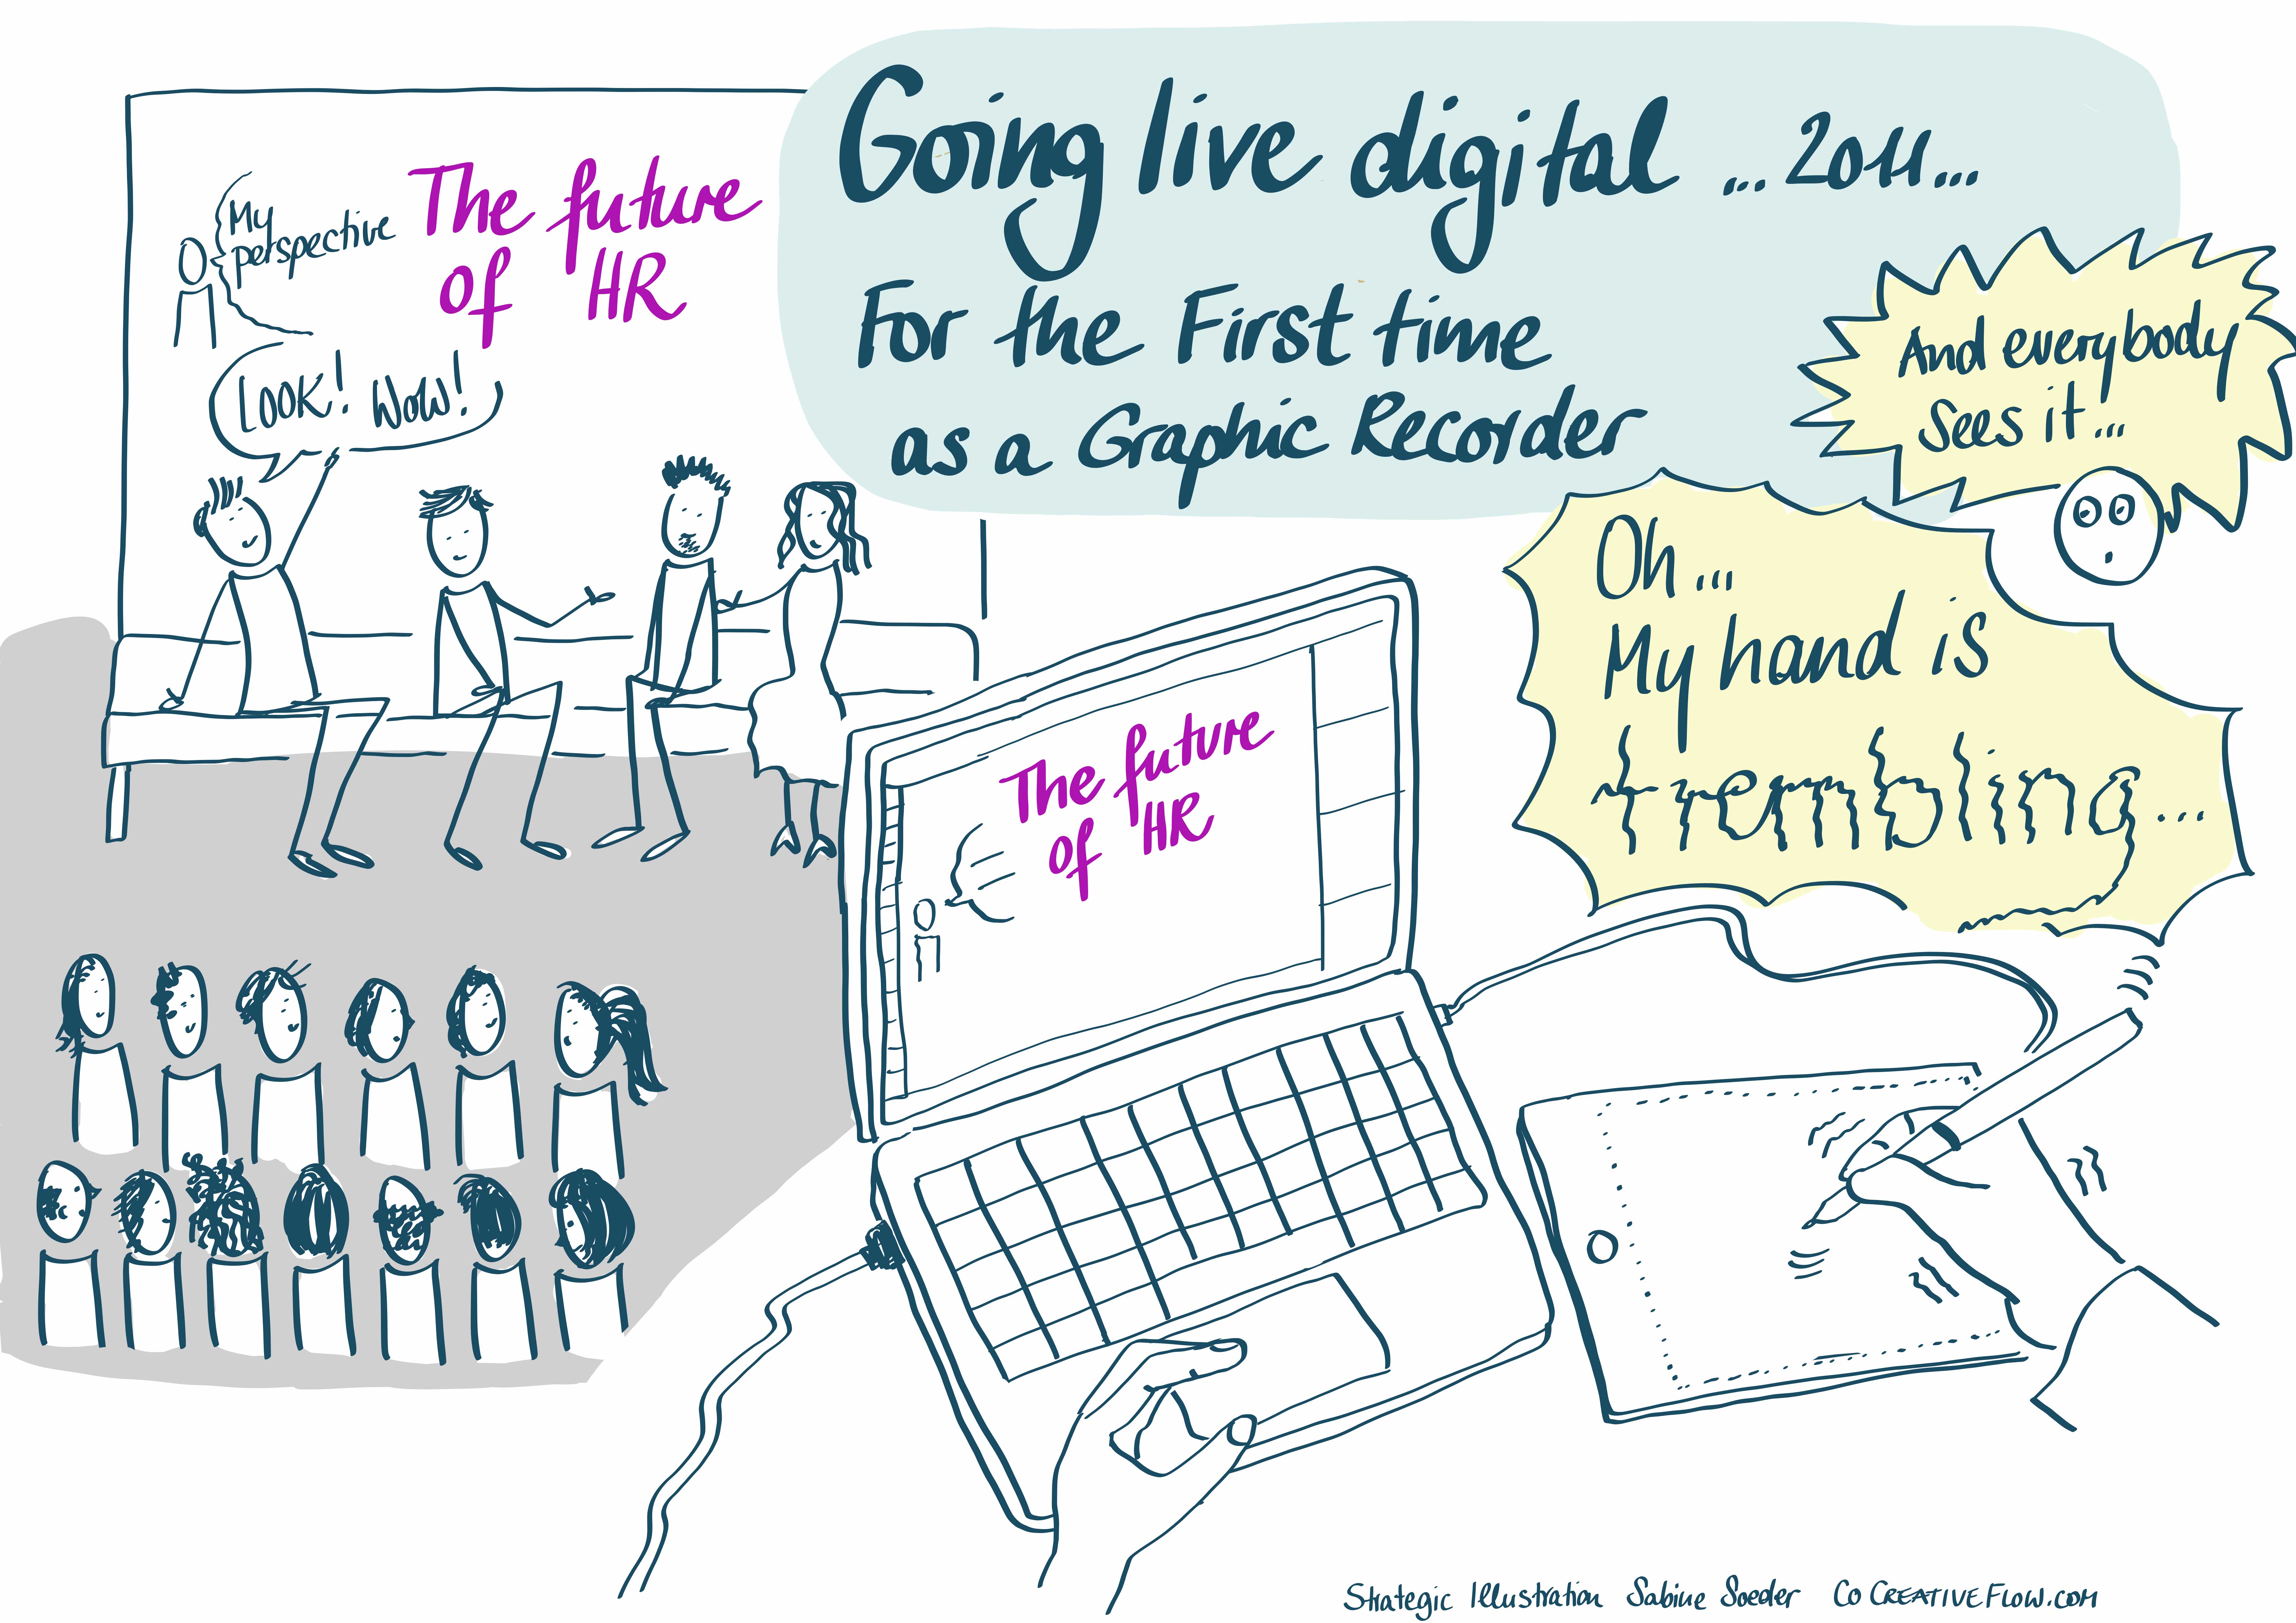 Going live digital ... 2011...
For the First time
as a Graphic Recorder
My
perspective
The future
of HR
LOOK! NOW!
And everybody
Sees it ...
Oh ...
My hand is
trembling ...
The future
of HR
Strategic Illustration Sabine Soeder CO CREATIVE FLOW.COM